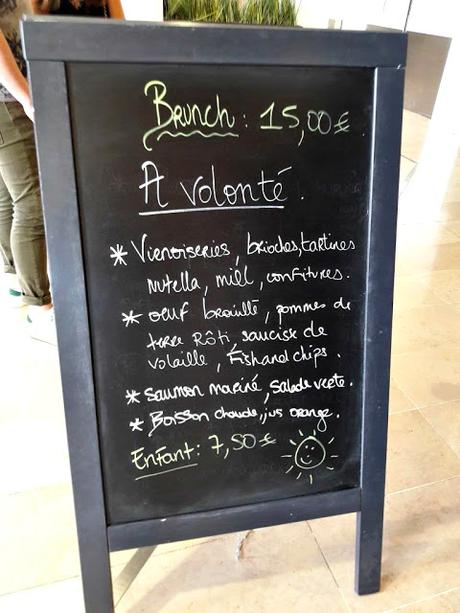 Brunch : 15,00€
A volonté.
* Vienoiseries, brioches, tartines
nutella, miel, confitures.
* oeuf brouillé, pommes de
terre Rôti, saucisse de
volaille, Fish and chips.
* saumon mariné, salade verte.
* Boisson chaude, jus orange.
Enfant : 7,50€